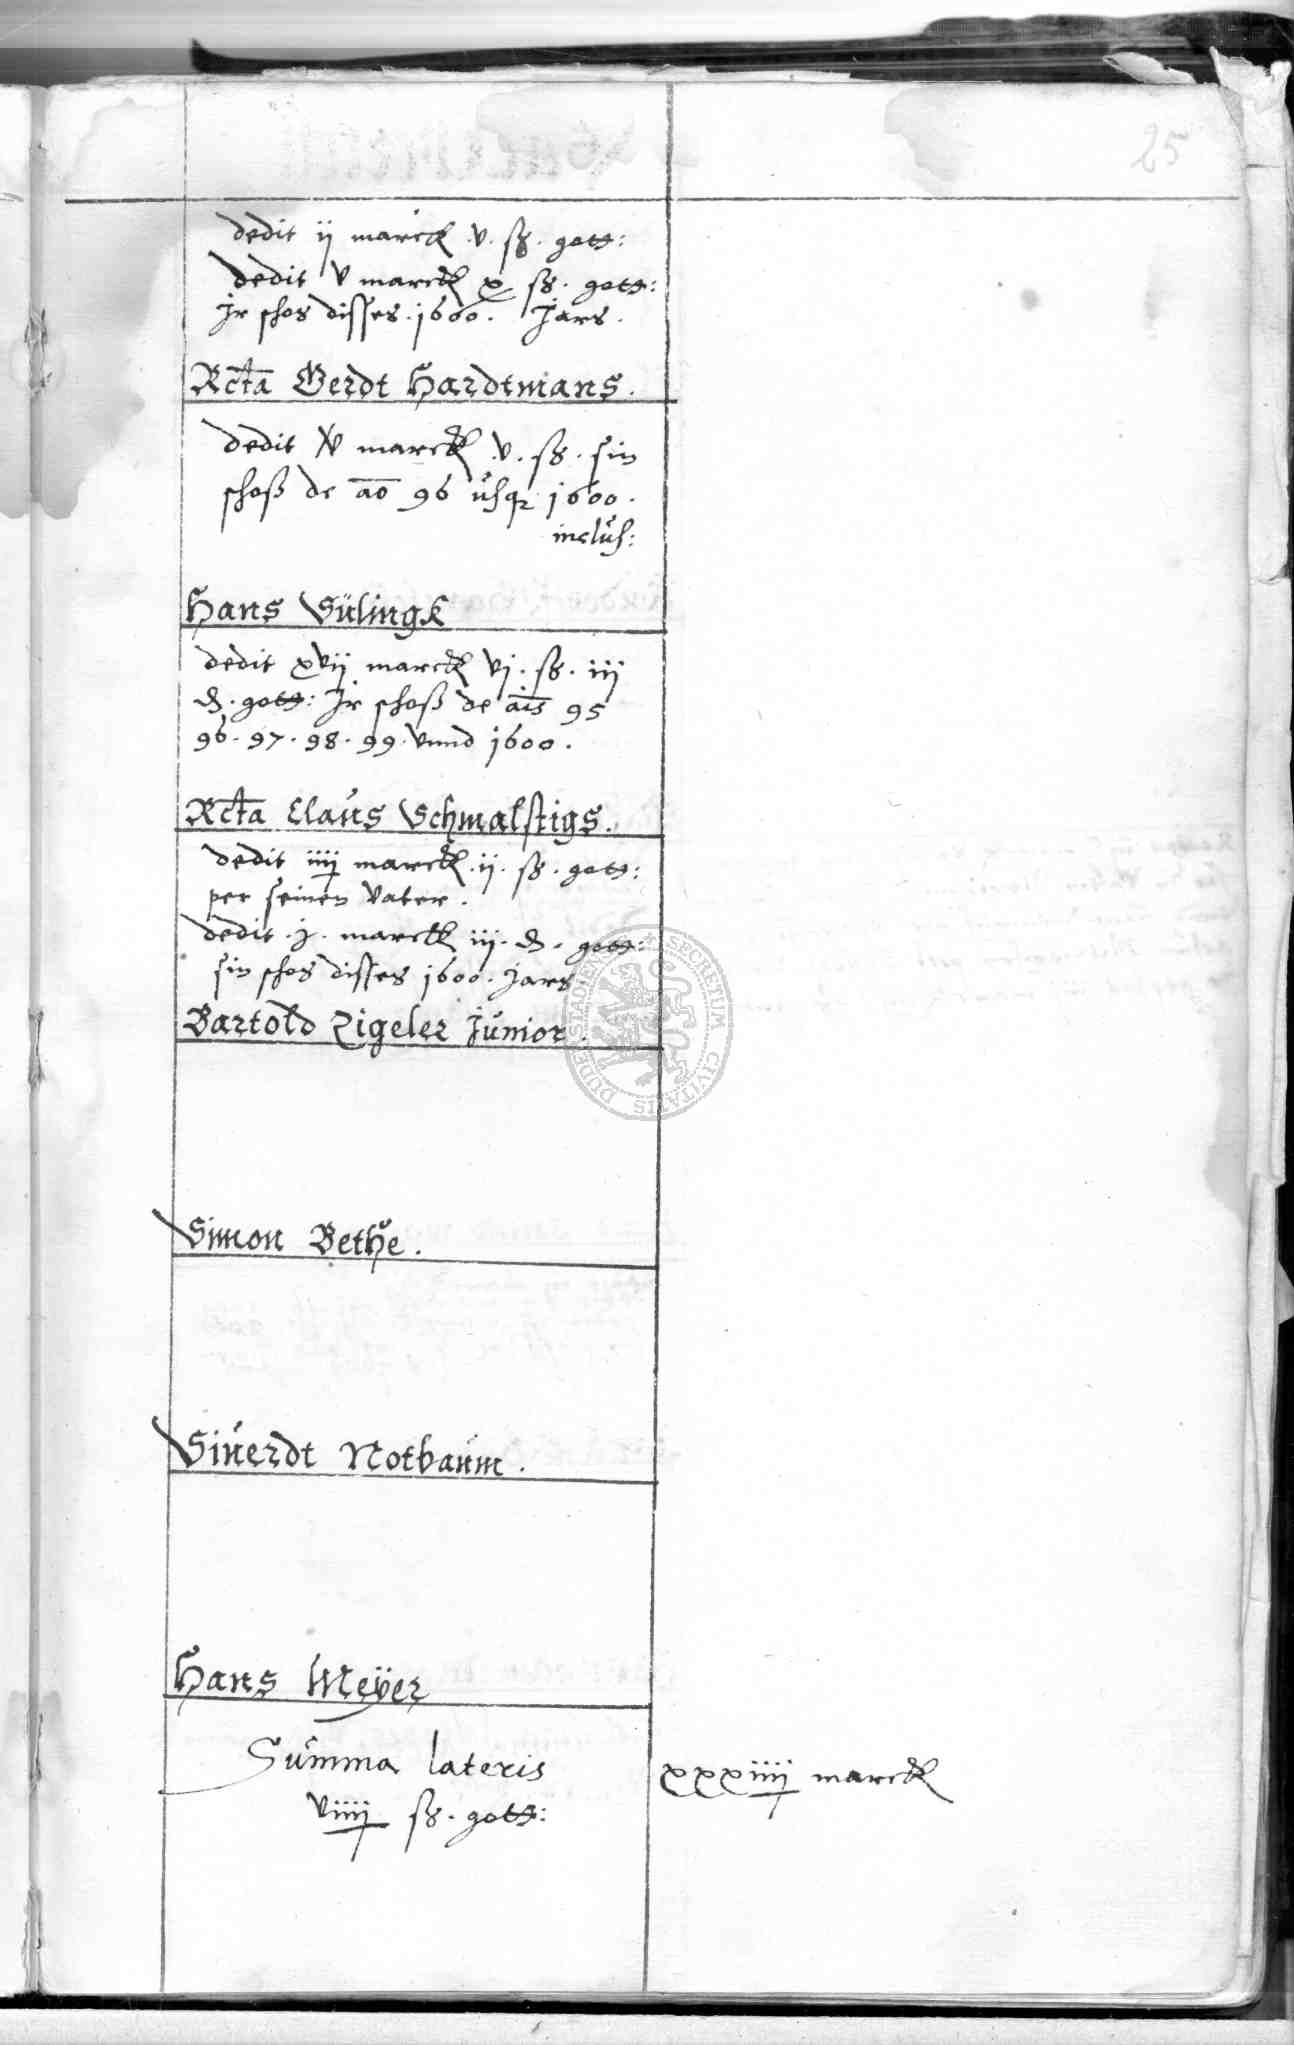 25
dedit ij marck .v. ß. gott:
dedit v marck x ß. gott:
Jr schos disses .1600. Jars.
Rcta Gerdt Hardtmans.
dedit iv marck .v. ß. sin
schoß de ao 96 usq 1600.
inclus:
Hans Sülingk
dedit xvij marck vj. ß. iij
₰. gott: Jr schoß de ais 95
96. 97. 98. 99. vnnd 1600.
Rcta Claus Schmalstigs.
dedit iiij marck .ij. ß. gott:
per seinen vater.
dedit .j. marck iij. ₰. gott:
sin schos disses 1600. Jars.
Bartold Zigeler Junior.
Simon Bethe.
Siuerdt Notbaum.
Hans Meÿer
Summa lateris xxxiiij marck
viiij ß. gott:
SECRETUM CIVITATIS DUDENSTADENSIS